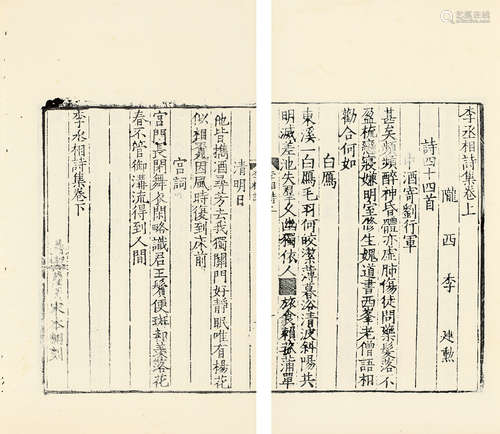 李丞相詩集卷上
隴西李 建勳
詩四十四首
中酒寄劉行軍
甚矣頻頻醉神昏體亦虛肺傷徒問藥髮落不
盈梳戀寢嫌明室修生媿道書西峯老僧語相
勸合何如
白鴈
東溪一白鴈毛羽何皎潔薄暮浴清波斜陽共
明滅差池失羣久幽獨依人 旅食賴菰蒲單
清明日
他皆攜酒尋芳去我獨關門好靜眠唯有楊花
似相覓因風時復到床前
宮詞
宮門長閉舞衣閑略識君王鬢便斑却羨落花
春不管御溝流得到人間
李丞相詩集卷下
宋本